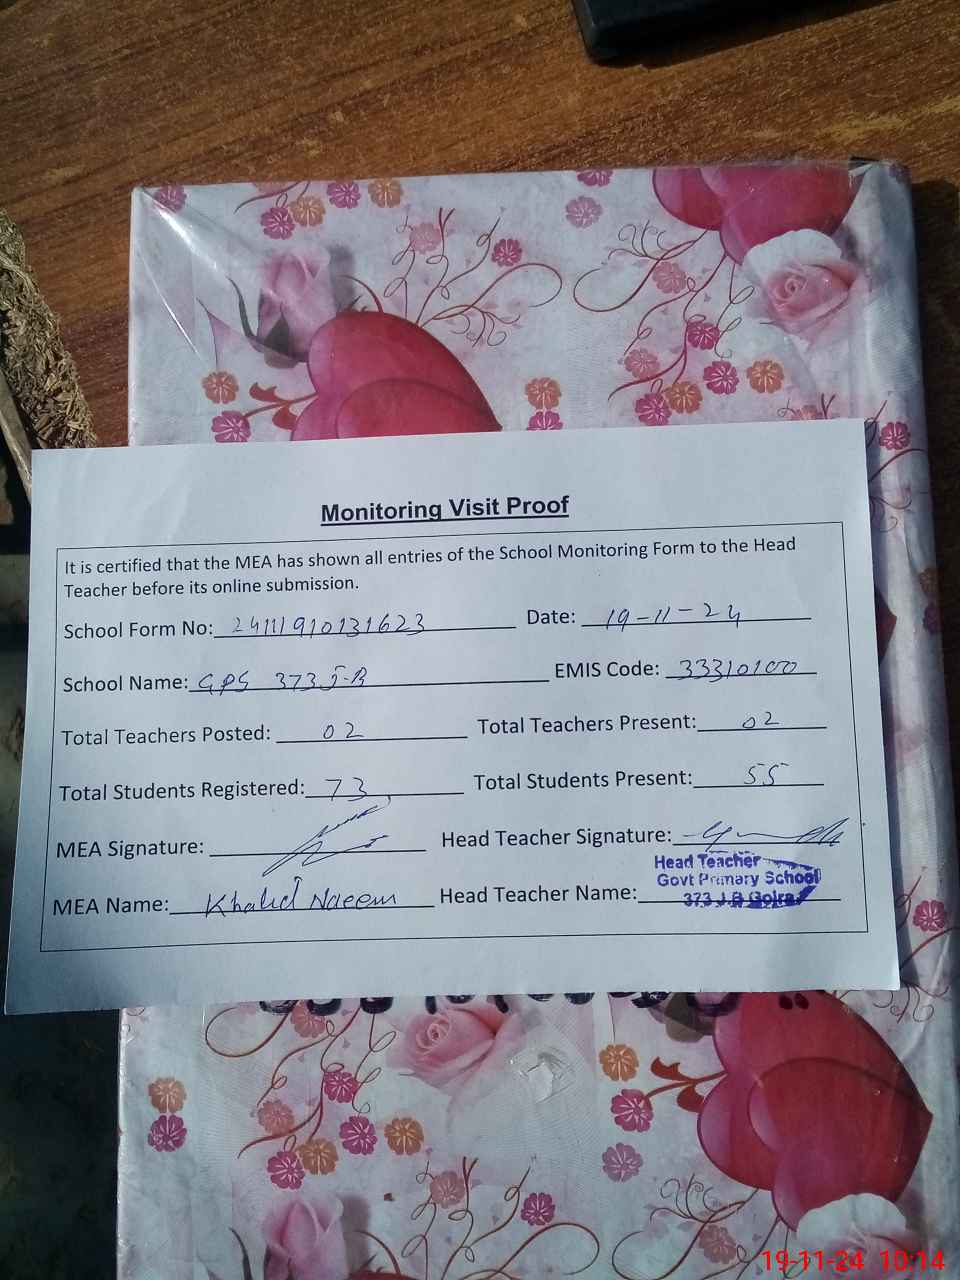 Monitoring Visit Proof
It is certified that the MEA has shown all entries of the School Monitoring Form to the Head
Teacher before its online submission.
School Form No: 24111910131623 Date: 19-11-24
School Name: GPS 373 J-B EMIS Code: 33310100
Total Teachers Posted: 02 Total Teachers Present: 02
Total Students Registered: 73 Total Students Present: 55
MEA Signature: Head Teacher Signature:
Head Teacher
Govt Primary School
MEA Name: Khalid Naeem Head Teacher Name: 373 J.B Gojra
19-11-24 10:14